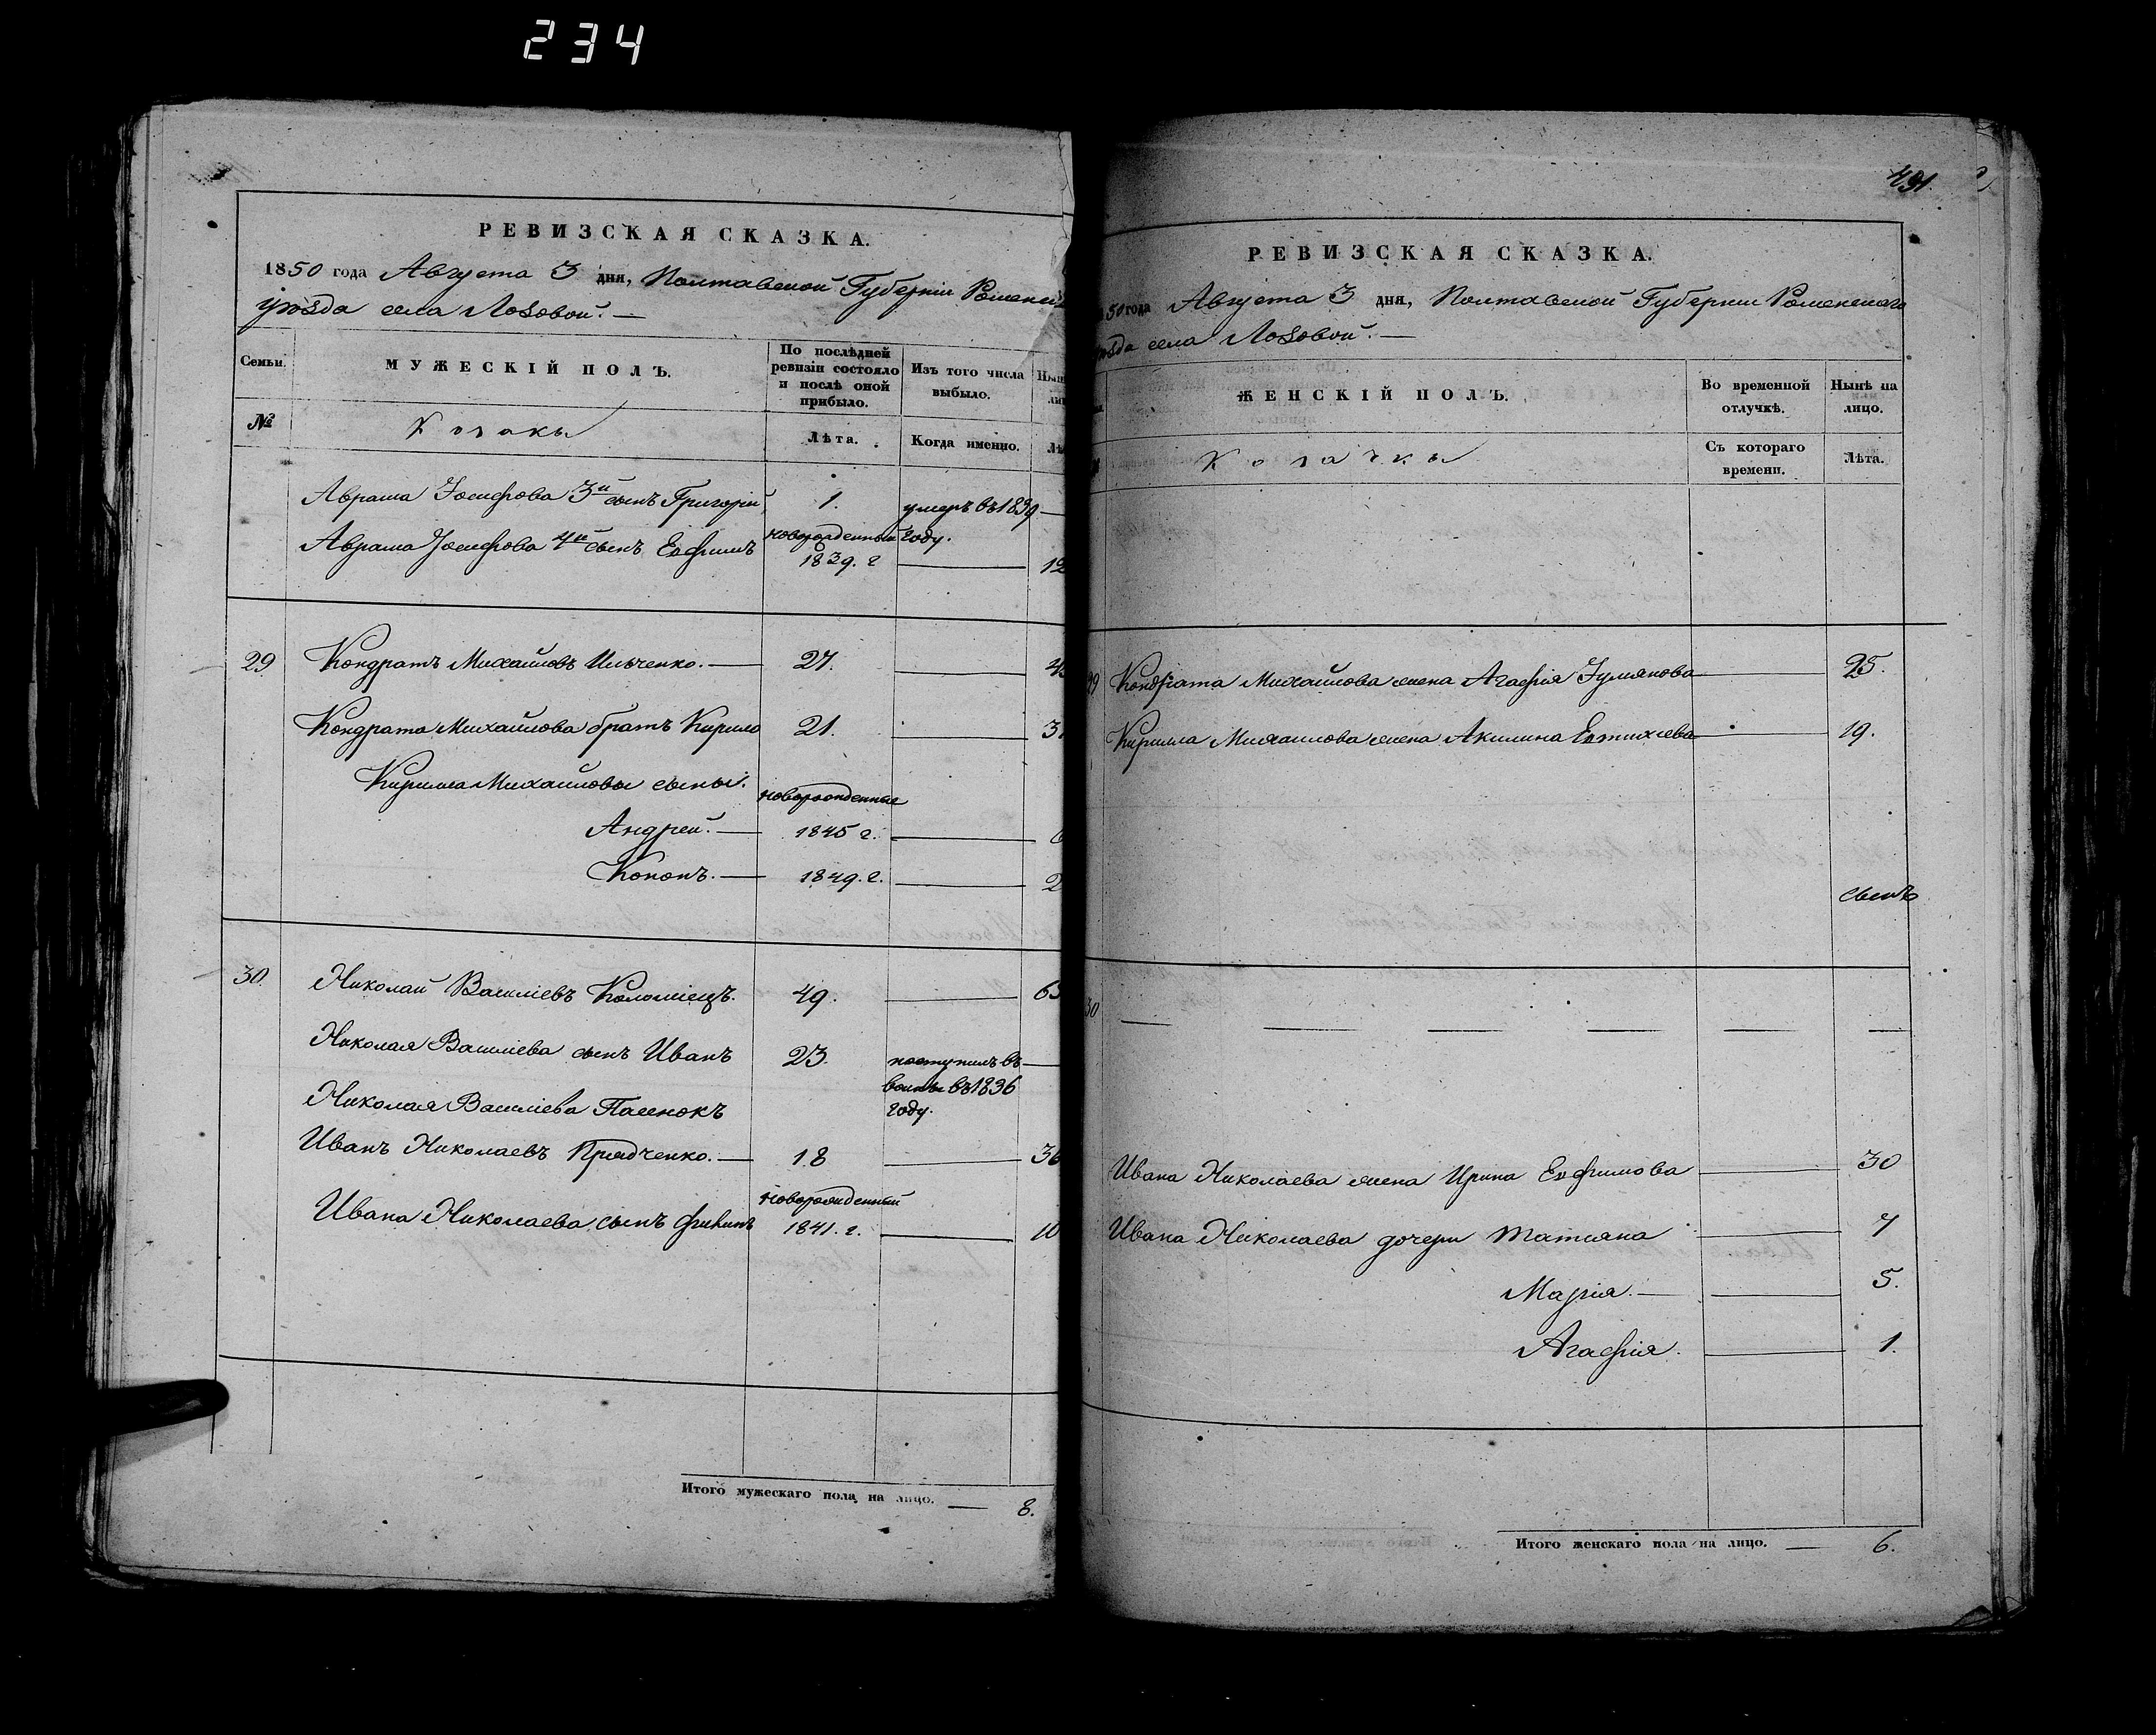 234
РЕВИЗСКАЯ СКАЗКА.
1850 года Августа 3 дня, Полтавской Губерніи Роменска
уѣзда села Лозовой.
Семьи.
МУЖЕСКІЙ ПОЛЪ.
По послѣдней ревизіи состояло и послѣ оной прибыло.
Изъ того числа выбыло.
№
Козаки
Лѣта.
Когда именно.
Абрама Іосифова 3й сынъ Григорій 1. умеръ въ 1839
году.
Абрама Іосифова 4й сынъ Евфимъ новорожденный 1839. г 12
29 Кондратъ Михайловъ Ильченко. 27.
Кондрата Михайлова братъ Кирило 21. 3
Кирилла Михайлова сыны: новорожденные
Андрей. 1845 г. 6
Кононъ. 1849. г. 2
30. Николай Василіевъ Коломіецъ. 49. 65
Николая Василіева сынъ Иванъ 23. поступилъ въ
воины въ 1836
году.
Николая Василіева Пасынокъ
Иванъ Николаевъ Прядченко. 18 36
новорожденный
Ивана Николаева сынъ 1841. г. 10
Итого мужескаго пола на лицо. 8.
491.
РЕВИЗСКАЯ СКАЗКА.
50 года Августа 3 дня, Полтавской Губерніи Роменскаго
уѣзда села Лозовой.
ЖЕНСКІЙ ПОЛЪ.
Во временной отлучкѣ.
Нынѣ на лицо.
Козачки
Съ котораго времени.
Лѣта.
29 Кондрата Михайлова жена Агафія 25.
Кирилла Михаилова жена Акилина Евтихіева 19.
30
Ивана Николаева жена Ирина Евфимова 30
Ивана Николаева дочери Татіяна 7
Марія. 5.
Агафія. 1.
Итого женскаго пола на лицо. 6.